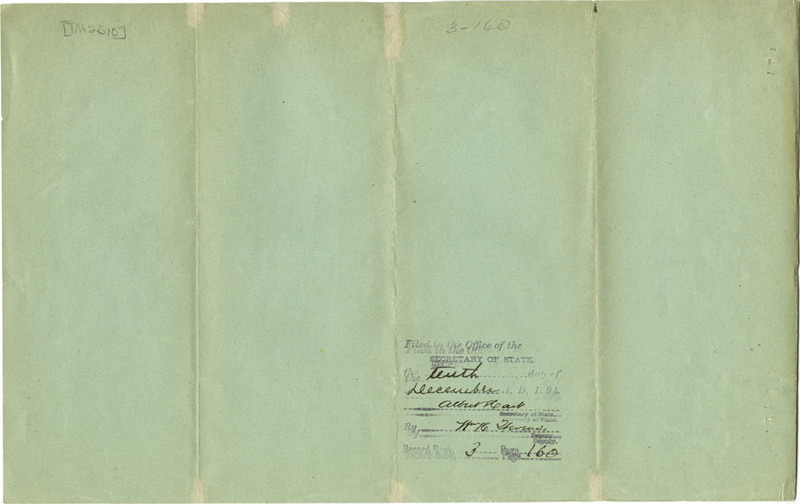 [TM2510]
3-160
Filed in the Office of the
SECRETARY OF STATE,
the tenth day of
December A, D. 1 9
Albert Hart
Secretary of State.
By W H
Deputy.
3 Page 160